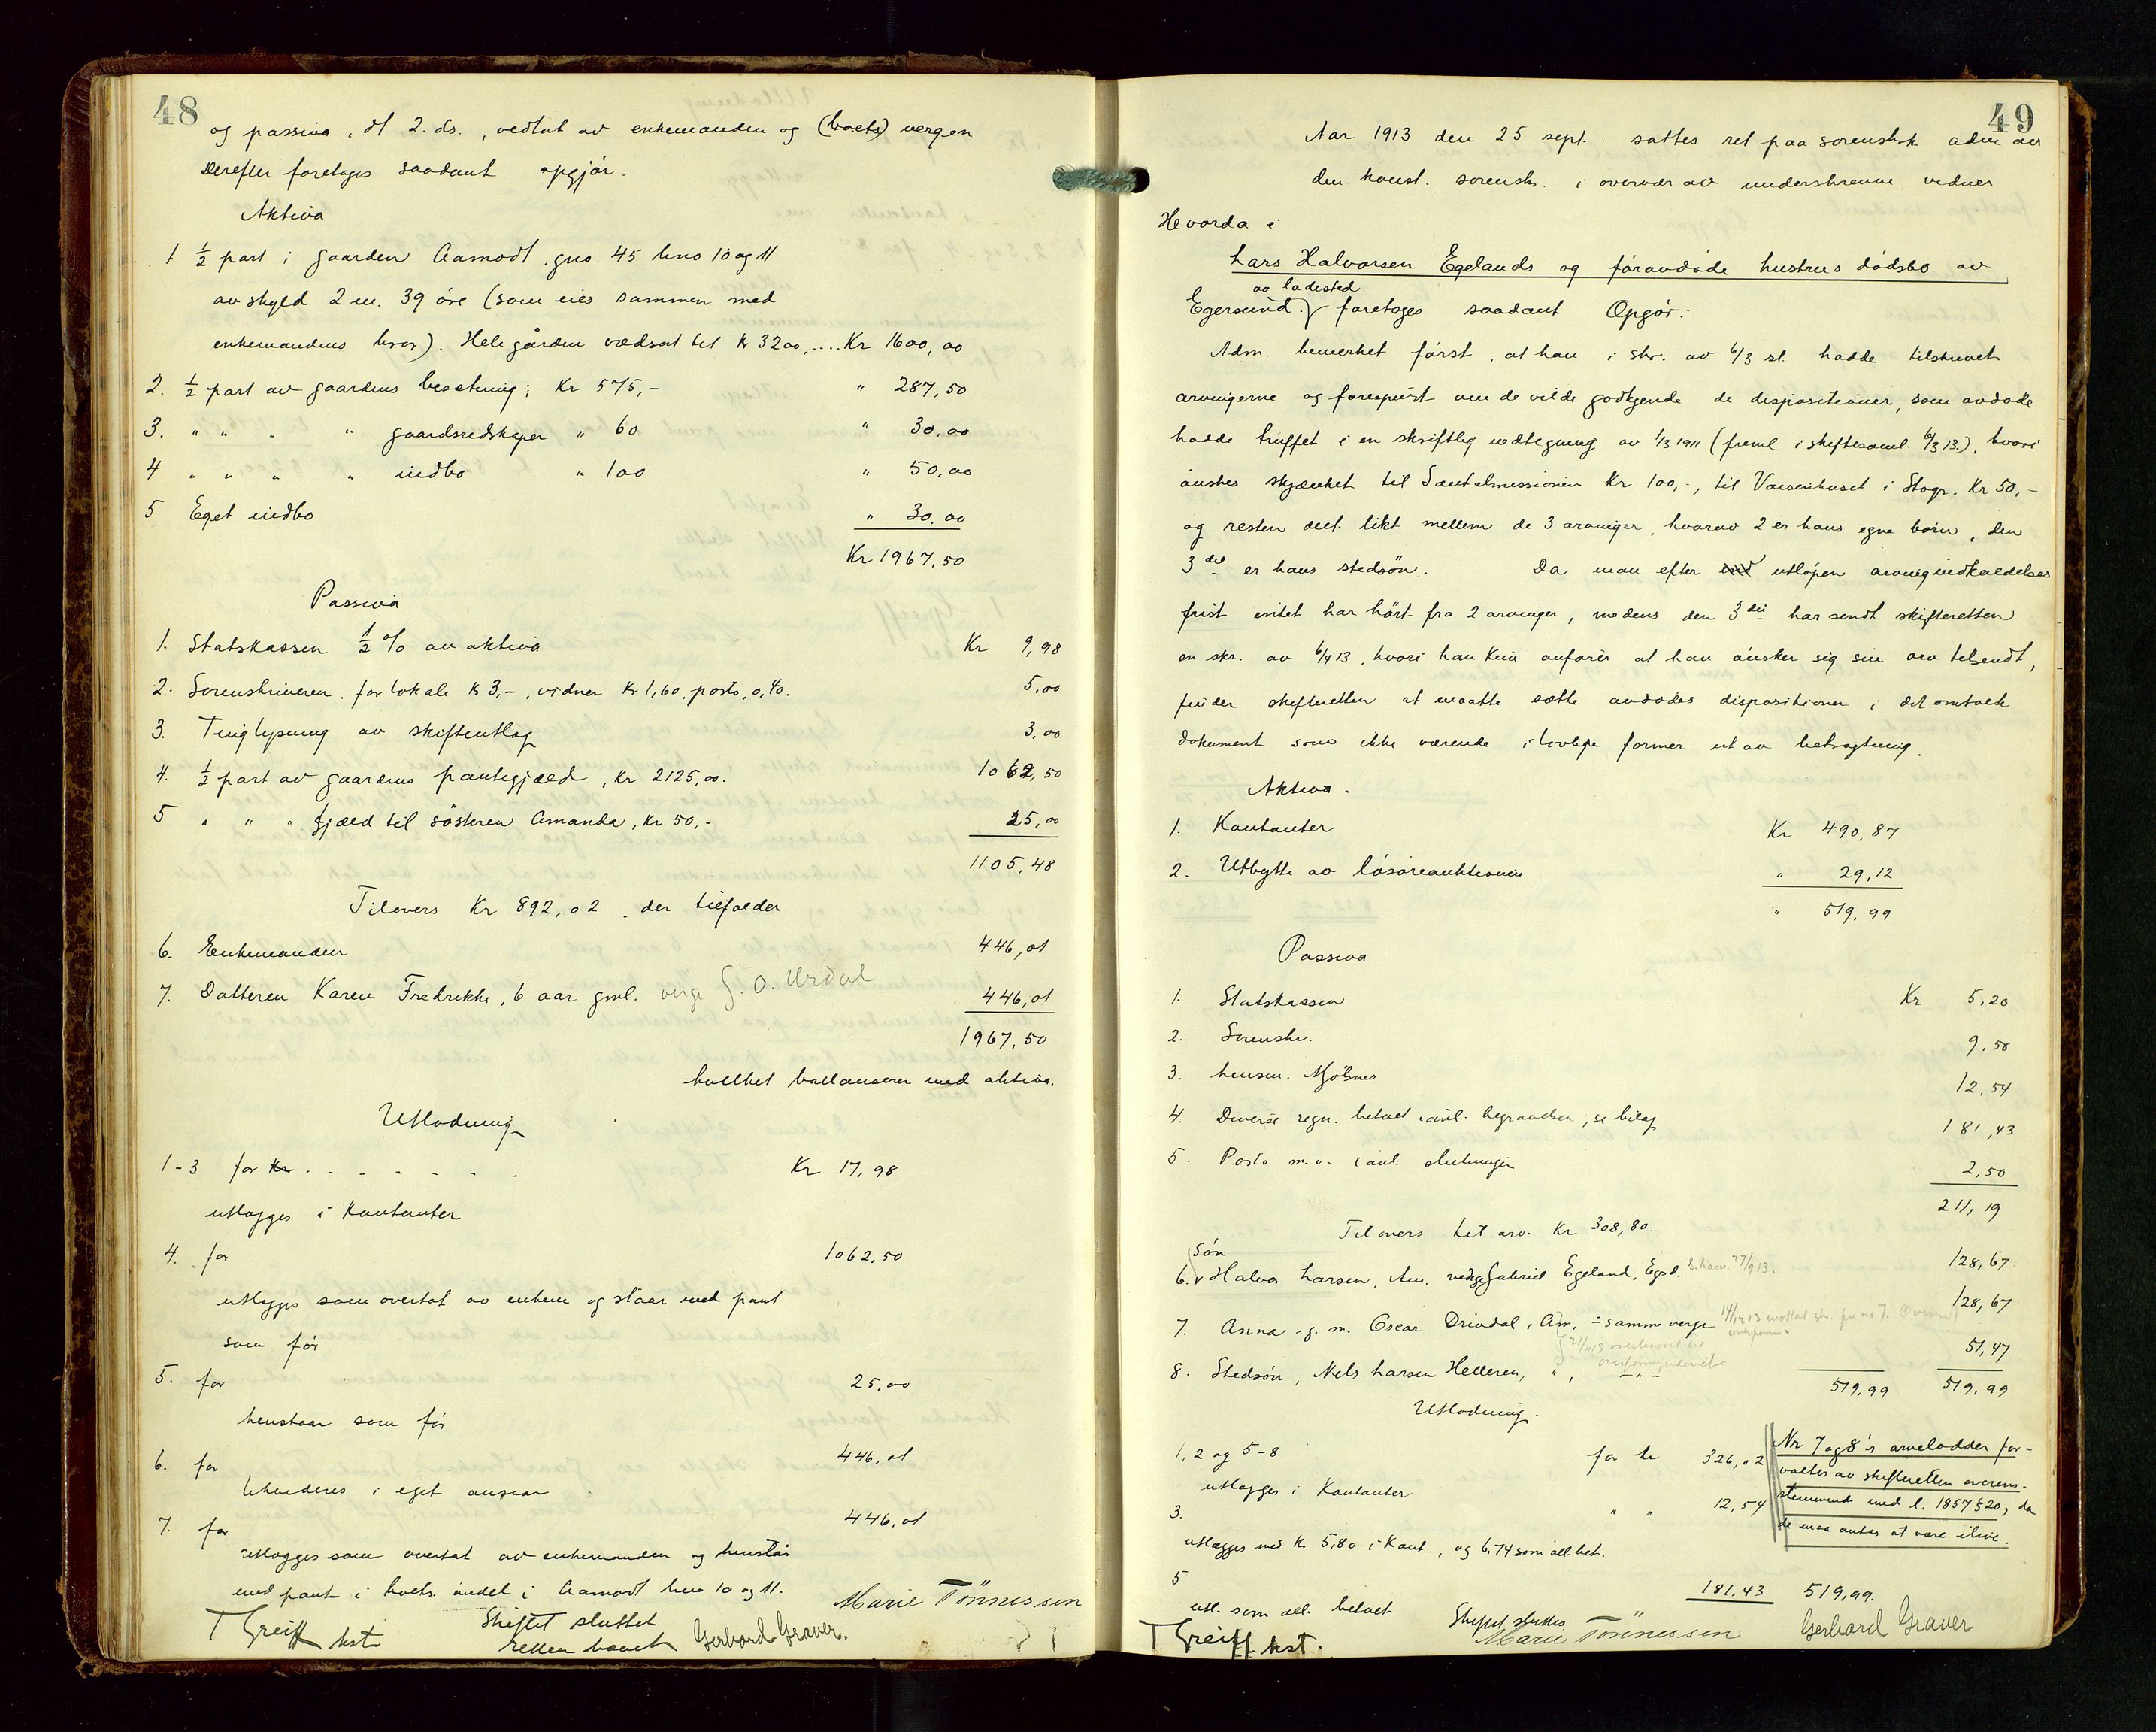 48
og passiva, dt 2. ds., vedtat av enkemanden og (boets) vergen
Derefter foretoges saadant opgjör.
Aktiva
1 1/2 part i gaarden Aamodt gno 45 bno 10 og 11
av skyld 2 m. 39 öre (som eies sammen med
enkemandens bror). Hele gården vædsat til kr 3200,.... Kr 1600,00
2. 1/2 part av gaardens besetning; Kr 575,- " 287,50
3. " " " " gaardsredskaper " 60 " 30,00
4 " " " " indbo " 100 " 50,00
5 Eget indbo " 30,00
Kr 1967,50
Passiva
1. Statskassen 1/2 % av aktiva Kr 9,98
2. Sorenskriveren for lokale kr 3,-, vidner Kr 1,60, porto 0,40. 5,00
3. Tinglysning av skifteutlæg 3,00
4. 1/2 part av gaardens pantegjæld, Kr 2125,00. 1062,50
5 " " " gjæld til sösteren Amanda, Kr 50,- 25,00
1105,48
Tilovers Kr 892,02, der tilfalder
6. Enkemanden 446,01
7. Datteren Karen Fredrikke, 6 aar gml. verge G. O. Urdal 446,01
1967,50
hvilket ballanserer med aktiva.
Utlodning
1-3 for Kr . - - - - - . Kr 17,98
utlægges i Kontanter
4. for 1062,50
utlægges som overtat av enkem og staar med pant
som för
5. for 25,00
henstaar som för
6. for 446,01
likvideres i eget ansvar
7. for 446,01
utlægges som overtat av enkemanden og henstår
med pant i boets andel i Aamodt bno 10 og 11.
Marie Tönnessen
T Greiff kst Skiftet sluttet
Retten hævet Gerhard Graver.
49
Aar 1913 den 25 sept. sattes ret paa sorenskrk adm av
den konst. sorenskr. i overvær av underskrevne vidner
Hvorda i
Lars Halvorsen Egelands og föravdöde hustrus dödsbo av
av ladested
Egersund foretoges saadant Opgör:
Adm. bemerket först, at han i skr. av 6/3 sl. hadde tilskrevet
arvingerne og forespurt om de vilde godkjende de dispositioner, som avdöde
hadde truffet i en skriftlig vedtegning av 1/3 1911 (freml i skiftesaml. 6/3 13), hvori
önskes skjænket til Santalmissionen Kr 100,-, til Vaisenhuset i Stvgr. Kr 50,-
og resten delt likt mellem de 3 arvinger, hvorav 2 er hans egne börn, den
3die er hans stedsön. Da man efter utlöpen arvingindkaldelses
frist intet har hört fra 2 arvinger, medens den 3die har sendt skifteretten
en skr. av 6/4 13, hvori han kun anförer at han önsker sig sin arv tilsendt,
finder skifteretten at maatte sætte avdödes dispositioner i det omtalte
dokument som ikke værende i lovlige former ut av betragtning.
Aktiva.
1. Kontanter Kr 490,87
2. Utbytte av lösöreauktionen " 29,12
" 519,99
Passiva
1. Statskassen Kr 5,20
2. Sorenskr. 9,58
3. Lensm. Mjölsnes 12,54
4. Diverse regn. betalt i anl. begravelsen, se bilag 181,43
5. Porto m.v. i anl. slutningen 2,50
211,19
Tilovers til arv. Kr 308,80.
Sön
6. Halvor Larsen, Am. verge Gabriel Egeland, Egsd. 27/9 13. 128,67
7. Anna - g. m. Oscar Drivdal, Am. = samme verge 128,67
8. Stedsön, Nels Larsen Helleren, " , - " - 51,47
519,99 519,99
Utlodning.
1, 2 og 5-8 for kr 326,02
utlægges i Kontanter
3. " " 12,54
utlægges med Kr 5,80 i Kont., og 6,74 som all. bet.
Nr 7 og 8's arvelodder for-
valtes av skifteretten overens-
stemmende med l. 1857 § 20, da
de maa antas at være ilive.
5 181,43 519,99.
utl. som all. betalt
Skiftet sluttet
T Greiff kst. Marie Tönnessen Gerhard Graver